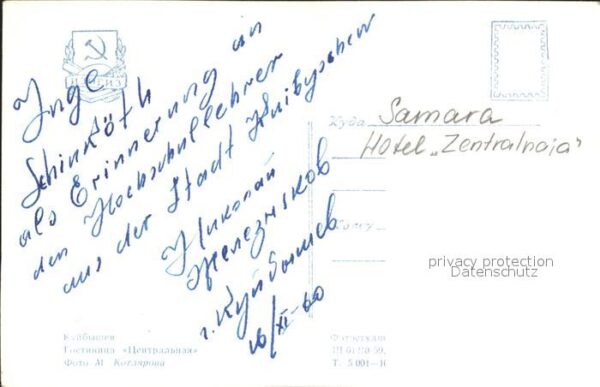 Inge
Schinköth
als Erinnerung an
den Hochschullehrer
aus der Stadt Kuibyschew
Николай
Железняков
г. Куйбышев
16/XI-60
Куда
Samara
Hotel „Zentralnaja"
Кому
privacy protection
Datenschutz
Куйбышев
Гостиница «Центральная»
Фото М. Котлярова
Т. 5.001—10